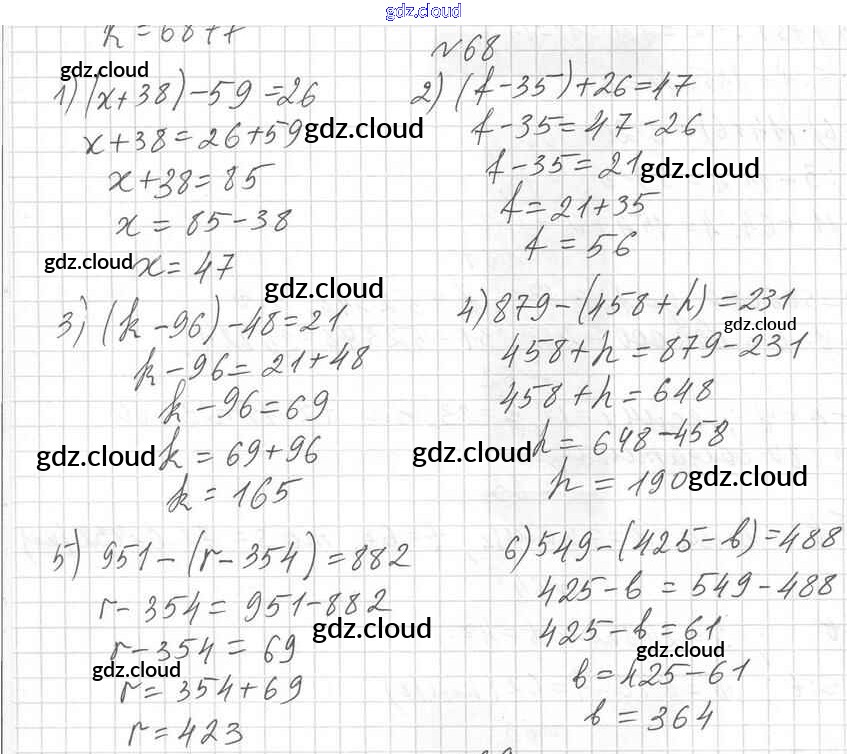 gdz.cloud
№68
gdz.cloud
1) (x+38)-59=26
x+38=26+59
gdz.cloud
x+38=85
x=85-38
gdz.cloud
x=47
2) (t-35)+26=47
t-35=47-26
t-35=21
gdz.cloud
t=21+35
t=56
gdz.cloud
3) (k-96)-48=21
k-96=21+48
k-96=69
gdz.cloud
k=69+96
k=165
4) 879-(458+h)=231
gdz.cloud
458+h=879-231
458+h=648
gdz.cloud
h=648-458
h=190
gdz.cloud
5) 951-(r-354)=882
r-354=951-882
gdz.cloud
r-354=69
gdz.cloud
r=354+69
r=423
6) 549-(425-b)=488
425-b=549-488
425-b=61
gdz.cloud
b=425-61
b=364